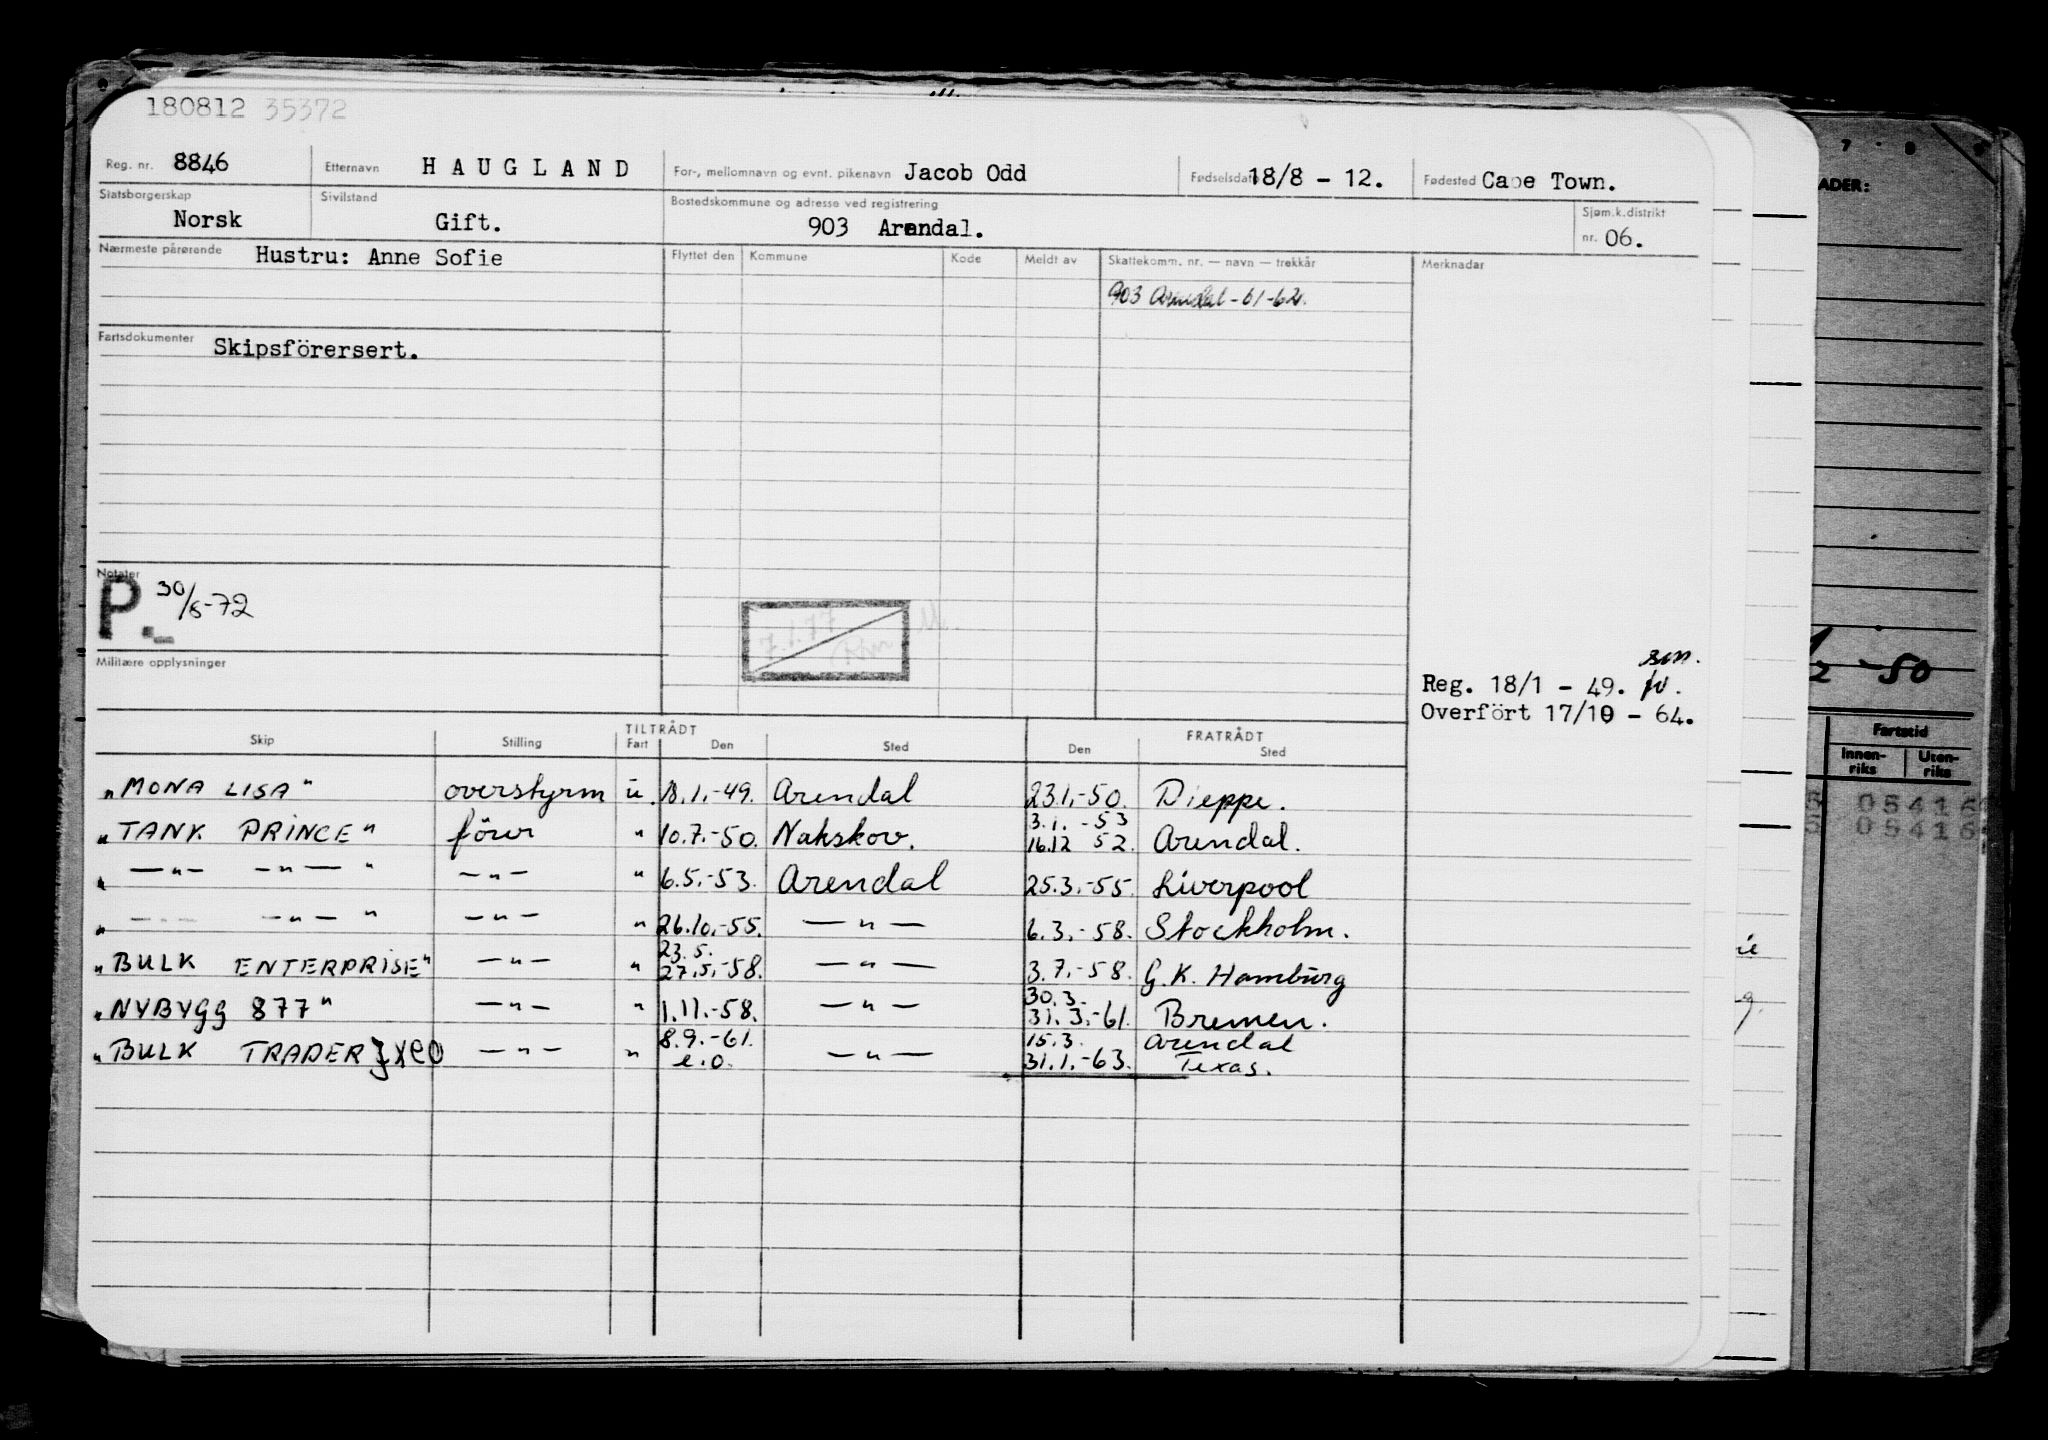 180812 35372
Reg. nr. 8846 Etternavn HAUGLAND For-, mellomnavn og evnt. pikenavn Jacob Odd Fødselsdato 18/8 - 12. Fødested Cape Town.
Statsborgerskap Norsk Sivilstand Gift. Bostedskommune og adresse ved registrering 903 Arendal. Sjøm.k.distrikt nr. 06.
Nærmeste pårørende Hustru: Anne Sofie Flyttet den Kommune Kode Meldt av Skattekomm. nr. — navn — trekkår Merknader
903 Arendal - 61-62.
Fartsdokumenter Skipsförersert.
Notater
P. 30/6-72
7.1.77
Militære opplysninger
Reg. 18/1 - 49.
Overfört 17/10 - 64.
TILTRÅDT FRATRÅDT
Skip Stilling Fart Den Sted Den Sted
"MONA LISA" overstyrm u. 18.1.-49. Arendal 23.1.-50. Dieppe.
3.1.-53
"TANK PRINCE" förer " 10.7.-50. Nakskov. 16.12 52. Arendal.
" —"— —"— " —"— " 6.5.-53. Arendal 25.3.-55. Liverpool
" —"— —"— " —"— " 26.10.-55. —"— 6.3.-58. Stockholm.
23.5.
"BULK ENTERPRISE" —"— " 27.5.-58. —"— 3.7.-58. G.K. Hamburg
30.3.
"NYBYGG 877" —"— " 1.11.-58. —"— 31.3.-61. Bremen.
8.9.-61. 15.3. Arendal
"BULK TRADER —"— " e.o. —"— 31.1.-63. Texas.
7 8 9
ADER:
-50
Fartstid
Innen-riks Uten-riks
05416
05416